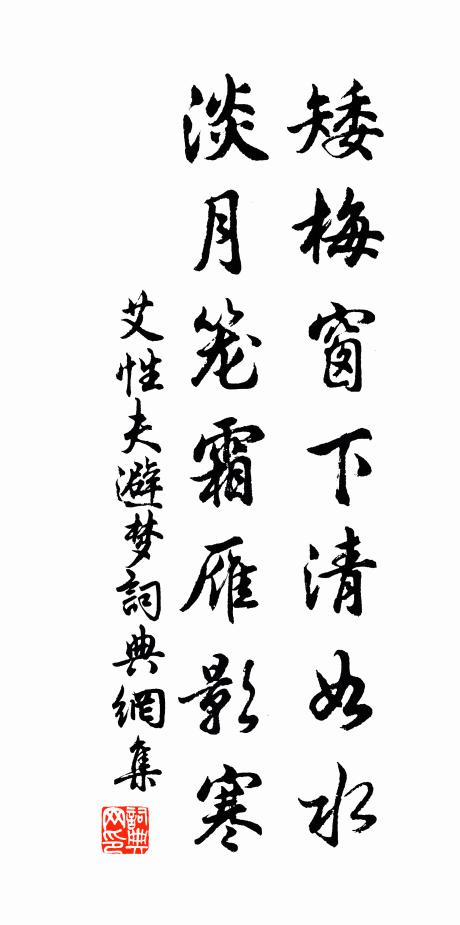 矮梅窗下清如水
淡月笼霜雁影寒
艾性夫避梦詞典網集
詞典网印